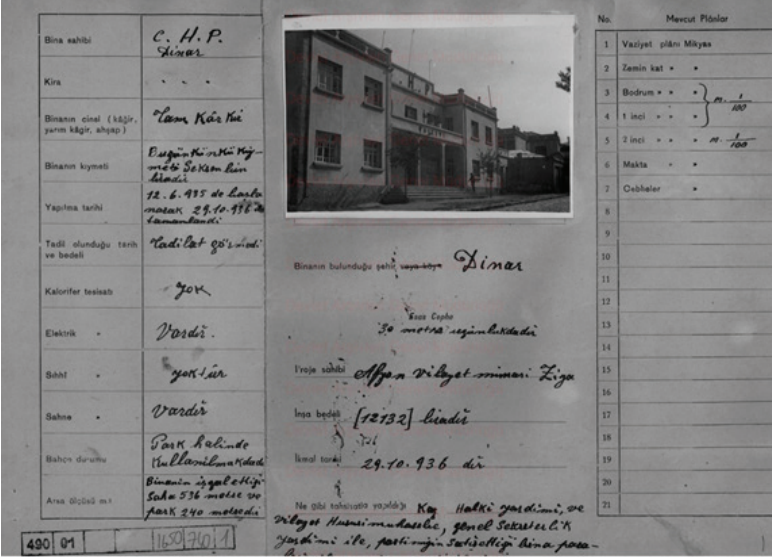 Bina sahibi
C. H. P.
Dinar
Kira
- - -
Binanın cinsi (kâgir,
yarım kâgir, ahşap)
Tam Kârkir
Binanın kıymeti
Bugünkünkü kıy-
meti Seksen bin
liradır
Yapılma tarihi
12.6.935 de başla
narak 29.10.936 da
tamamlandı
Tadil olunduğu tarih
ve bedeli
Tadilat görmedi
Kalorifer tesisatı
Yok
Elektrik "
Vardır.
Sıhhî "
yoktur
Sahne "
Vardır
Bahçe durumu
Park halinde
Kullanılmakdadır
Arsa ölçüsü m.²
Binanın işgal ettiği
Saha 536 metre ve
park 240 metredir
490 01
1650 760 1
Binanın bulunduğu şehir veya köy Dinar
Esas Cephe
30 metre uzunlukdadır
Proje sahibi Afyon Vilayet mimari Ziya
İnşa bedeli [12132] liradır
İkmal tarihi 29.10.936 dır
Ne gibi tahsisatla yapıldığı Halkı yardımı, ve
Vilayet Hususi muhasebe, genel Sekreterlik
yardımı ile, partimizin Satısettiği bina para-
No. Mevcut Plânlar
1 Vaziyet plânı Mikyas
2 Zemin kat " "
3 Bodrum " " "
4 1 inci " " "
m. 1/100
5 2 inci " " " m. 1/100
6 Makta " "
7 Cebheler "
8
9
10
11
12
13
14
15
16
17
18
19
20
21